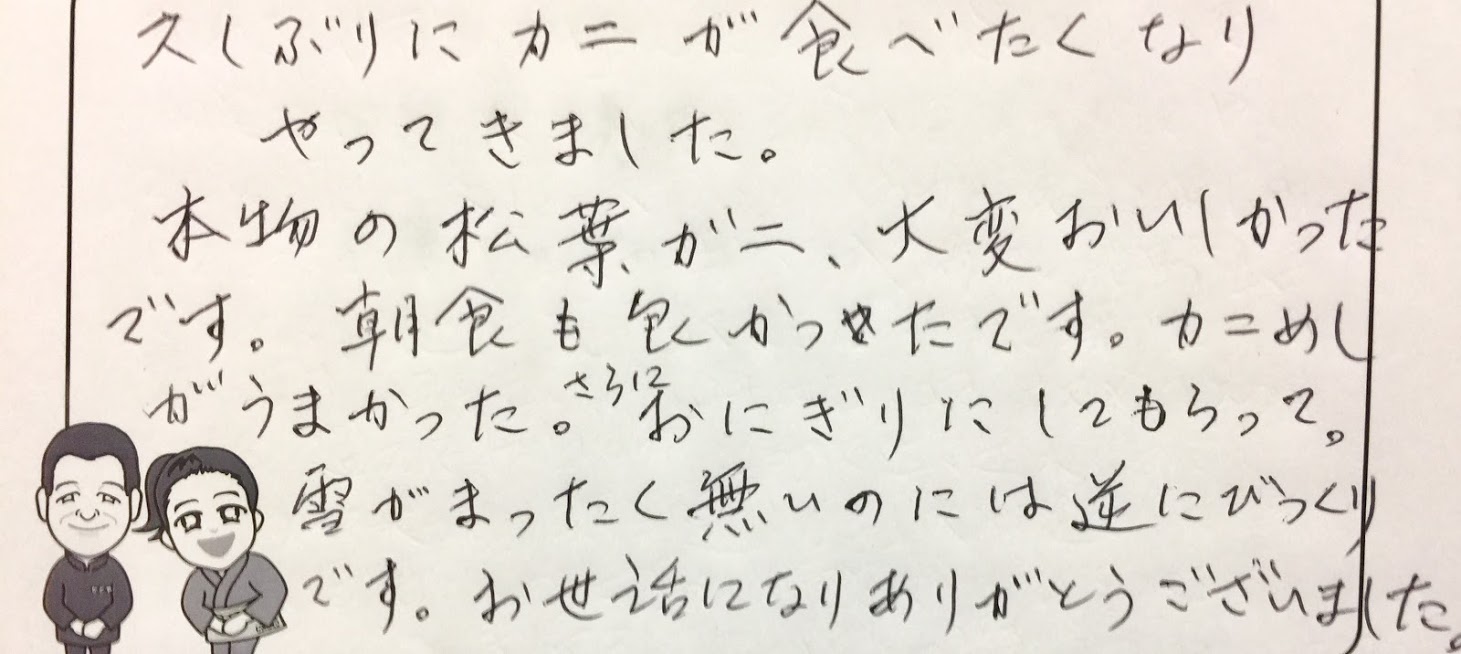 久しぶりにカニが食べたくなり
やってきました。
本物の松葉ガニ、大変おいしかった
です。朝食も良かったです。カニめし
がうまかった。さらにおにぎりにしてもらって。
雪がまったく無いのには逆にびっくり
です。お世話になりありがとうございました。